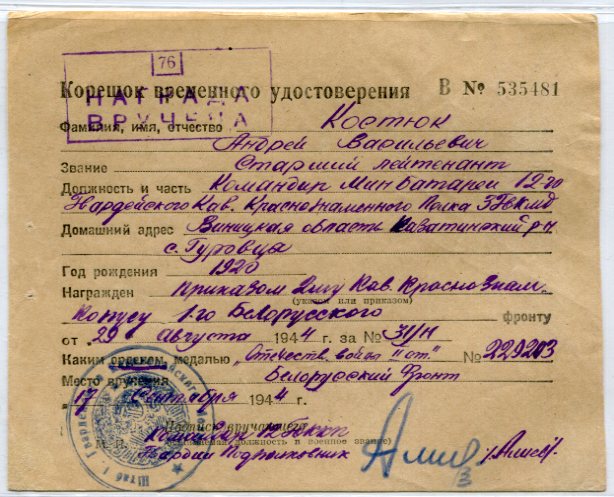 76
НАГРАДА
ВРУЧЕНА
Корешок временного удостоверения В № 535481
Фамилия, имя, отчество Костюк
Андрей Васильевич
Звание Старший лейтенант
Должность и часть Командир Мин Батареи 12-го
Гвардейского Кав. Краснознаменного Полка 3 Гв КМД
Домашний адрес Виницкая область Казатинский р-н
с. Гуровцы
Год рождения 1920
Награжден приказом 2му Кав. Краснознам.
(указом или приказом)
Копусу 1-го Белорусского фронту
от „29 Августа 1944 г. за № 31/Н
Каким орденом, медалью „Отечеств. войны II ст." № 229203
Место вручения Белорусский Фронт
„17 Сентября 1944 г.
Подпись вручающего
М. П. (занимаемая должность и военное звание)
Гвардии Подполковник